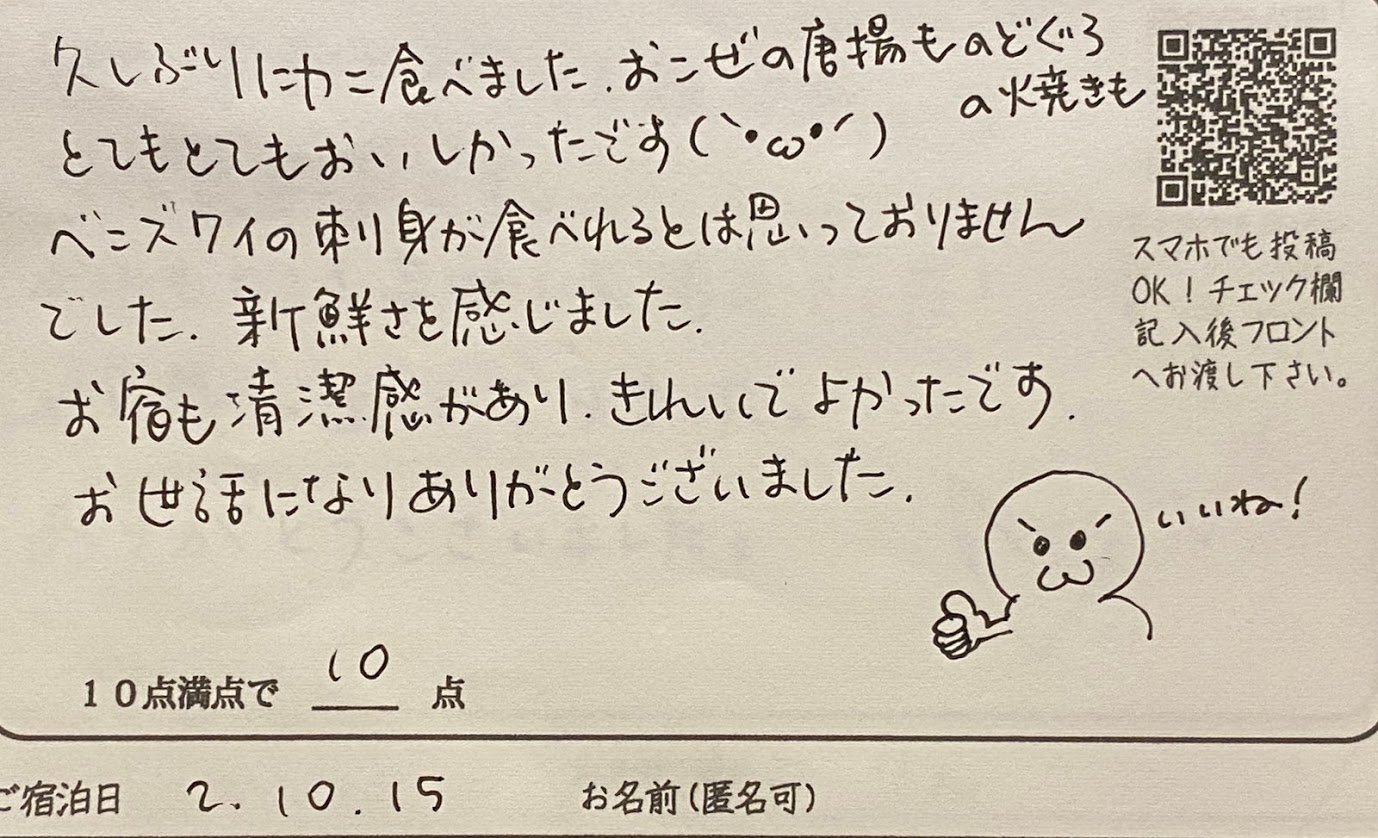 久しぶりにカニ食べました.おこぜの唐揚ものどぐろ
の焼きも
とてもとてもおいしかったです(`•ω•´)
ベニズワイの刺身が食べれるとは思いっておりません
でした.新鮮さを感じました.
お宿も清潔感があり.きれいでよかったです.
お世話になりありがとうございました.
スマホでも投稿
OK!チェック欄
記入後フロント
へお渡し下さい。
いいね!
10点満点で 10 点
ご宿泊日 2.10.15 お名前(匿名可)